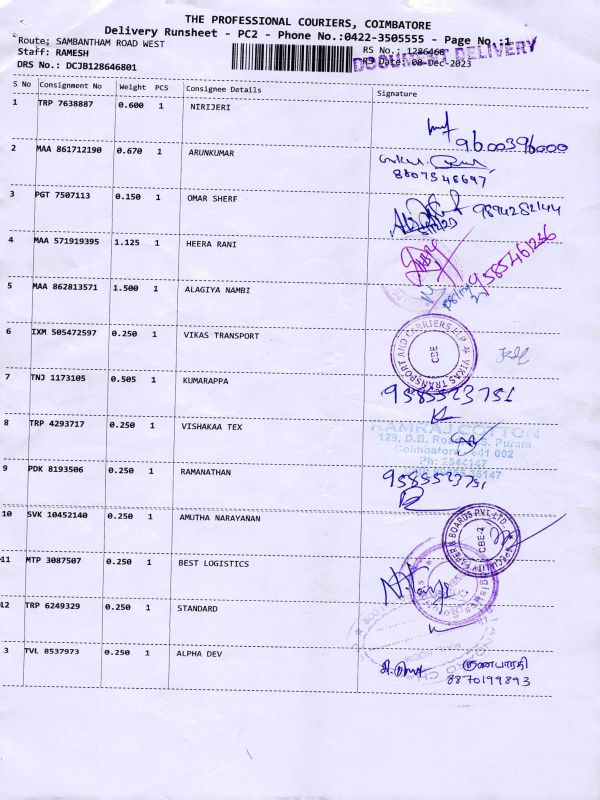 THE PROFESSIONAL COURIERS, COIMBATORE
Delivery Runsheet - PC2 - Phone No.:0422-3505555 - Page No.:1
Route; SAMBANTHAM ROAD WEST
RS No.: 1286468
DOCUMENT DELIVERY
Staff: RAMESH
Date: 08-Dec-2023
DRS No.: DCJB128646801
S No Consignment No Weight PCS Consignee Details Signature
1 TRP 7638887 0.600 1 NIRIJERI
9600396000
2 MAA 861712190 0.670 1 ARUNKUMAR
8807548697
3 PGT 7507113 0.150 1 OMAR SHERF
9894282144
4 MAA 571919395 1.125 1 HEERA RANI
9585461236
5 MAA 862813571 1.500 1 ALAGIYA NAMBI
6 IXM 505472597 0.250 1 VIKAS TRANSPORT
VIKAS TRANSPORT AND CARRIERS LLP
CBE
7 TNJ 1173105 0.505 1 KUMARAPPA
9585523751
8 TRP 4293717 0.250 1 VISHAKAA TEX
RAMRAJ COTTON
129, D.B. Road, R.S. Puram
Coimbatore - 641 002
Ph: 2544147
9 PDK 8193506 0.250 1 RAMANATHAN
9585523751
10 SVK 10452140 0.250 1 AMUTHA NARAYANAN
SPECIALITY PAPER & BOARDS PVT LTD
CBE-2
11 MTP 3087507 0.250 1 BEST LOGISTICS
12 TRP 6249329 0.250 1 STANDARD
3 TVL 8537973 0.250 1 ALPHA DEV
குணபாரதி
8870199893